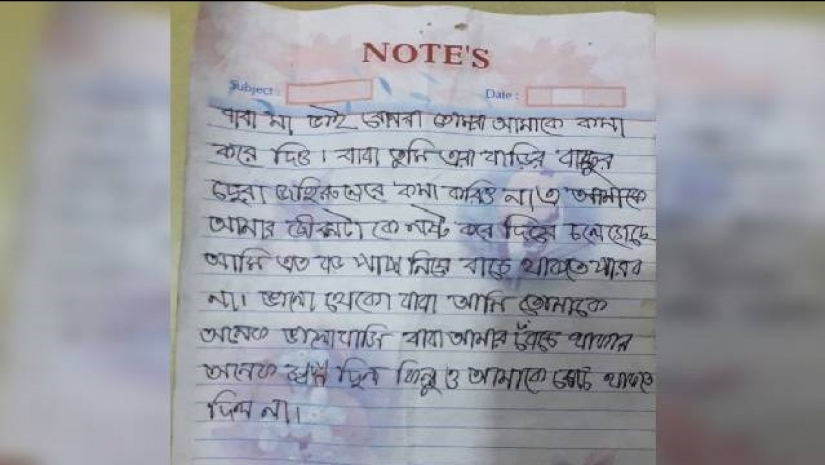 NOTE'S
Subject :
Date :
বাবা মা ভাই তোমরা আমাকে ক্ষমা
করে দিও। বাবা তুমি বাড়ির
ক্ষমা করিও না। ও আমাকে
আমার জীবনটা কে নষ্ট করে দিয়ে চলে গেছে
আমি এত বড় পাপ নিয়ে বাচে থাকতে পারব
না। ভালো থেকো বাবা আমি তোমাকে
অনেক ভালোবাসি বাবা আমার বেঁচে থাকার
অনেক স্বপ্ন ছিল কিন্তু ও আমাকে থাকতে
দিল না।